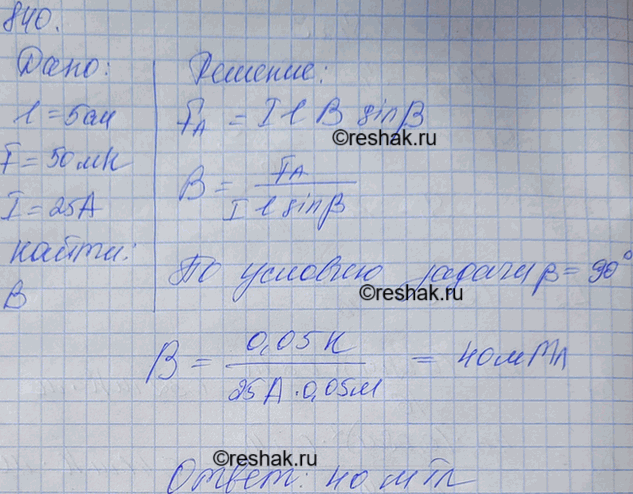 840.
Дано:
l = 5см
F = 50мН
I = 25А
найти:
B
Решение:
F_A = I l B sinβ
©reshak.ru
B = F_A / (I l sinβ)
По условию задачи β = 90°
©reshak.ru
B = 0,05 Н / (25А · 0,05м) = 40мТл
©reshak.ru
Ответ: 40 мТл